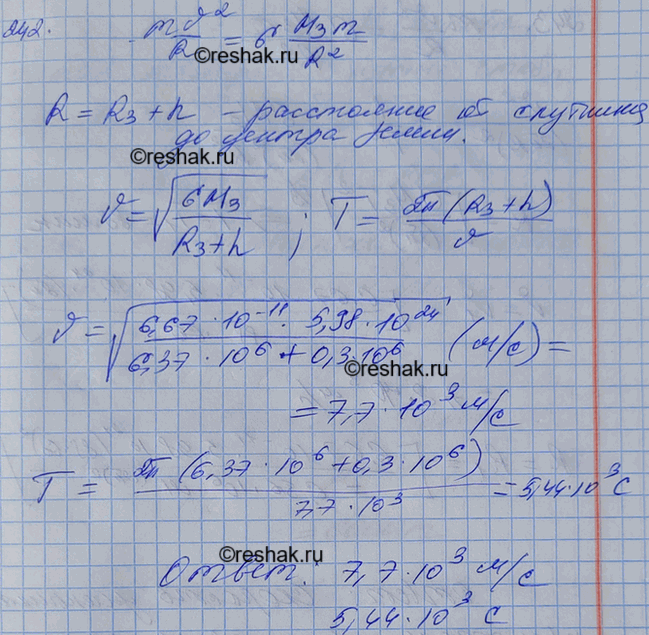 242. mϑ²/R = G M₃m/R²
©reshak.ru
R = R₃ + h – расстояние от спутника
до центра Земли.
©reshak.ru
ϑ = √(GM₃/(R₃+h)) ; T = 2π(R₃+h)/ϑ
ϑ = √((6,67·10⁻¹¹·5,98·10²⁴)/(6,37·10⁶+0,3·10⁶)) (м/с) =
= 7,7·10³ м/с
T = 2π(6,37·10⁶+0,3·10⁶)/(7,7·10³) = 5,44·10³ с
©reshak.ru
Ответ: 7,7·10³ м/с
5,44·10³ с
©reshak.ru